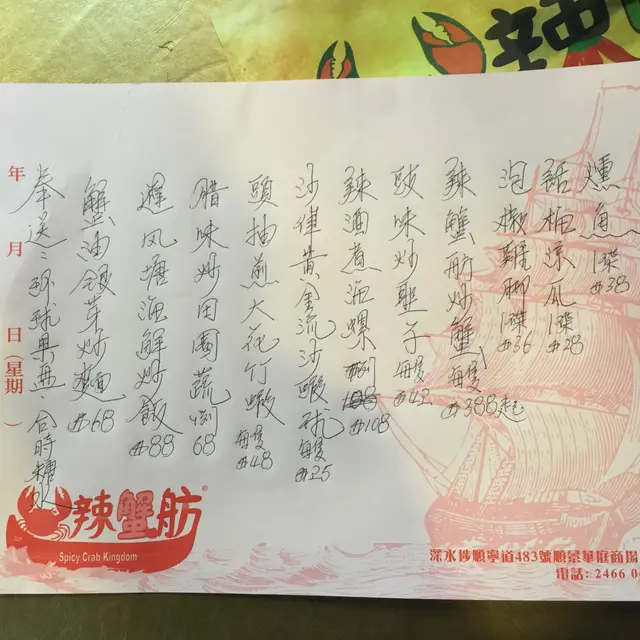 燻魚 1碟 #38
話梅涼瓜 1碟 #28
泡椒雞腳 1碟 #36
辣蟹舫炒蟹 每隻 #388起
豉味炒聖子 每隻 #42
辣酒煮海螺 例 #108
沙律黃金流沙蝦球 每隻 #25
頭抽煎大花竹蝦 每隻 #48
腊味炒田園蔬 例 68
避風塘海鮮炒飯 #88
蟹油銀芽炒麵 #68
奉送:環球果盤、合時糖水
年 月 日(星期 )
辣蟹舫®
Spicy Crab Kingdom
深水埗順寧道483號順景華庭商場
電話: 2466
辣